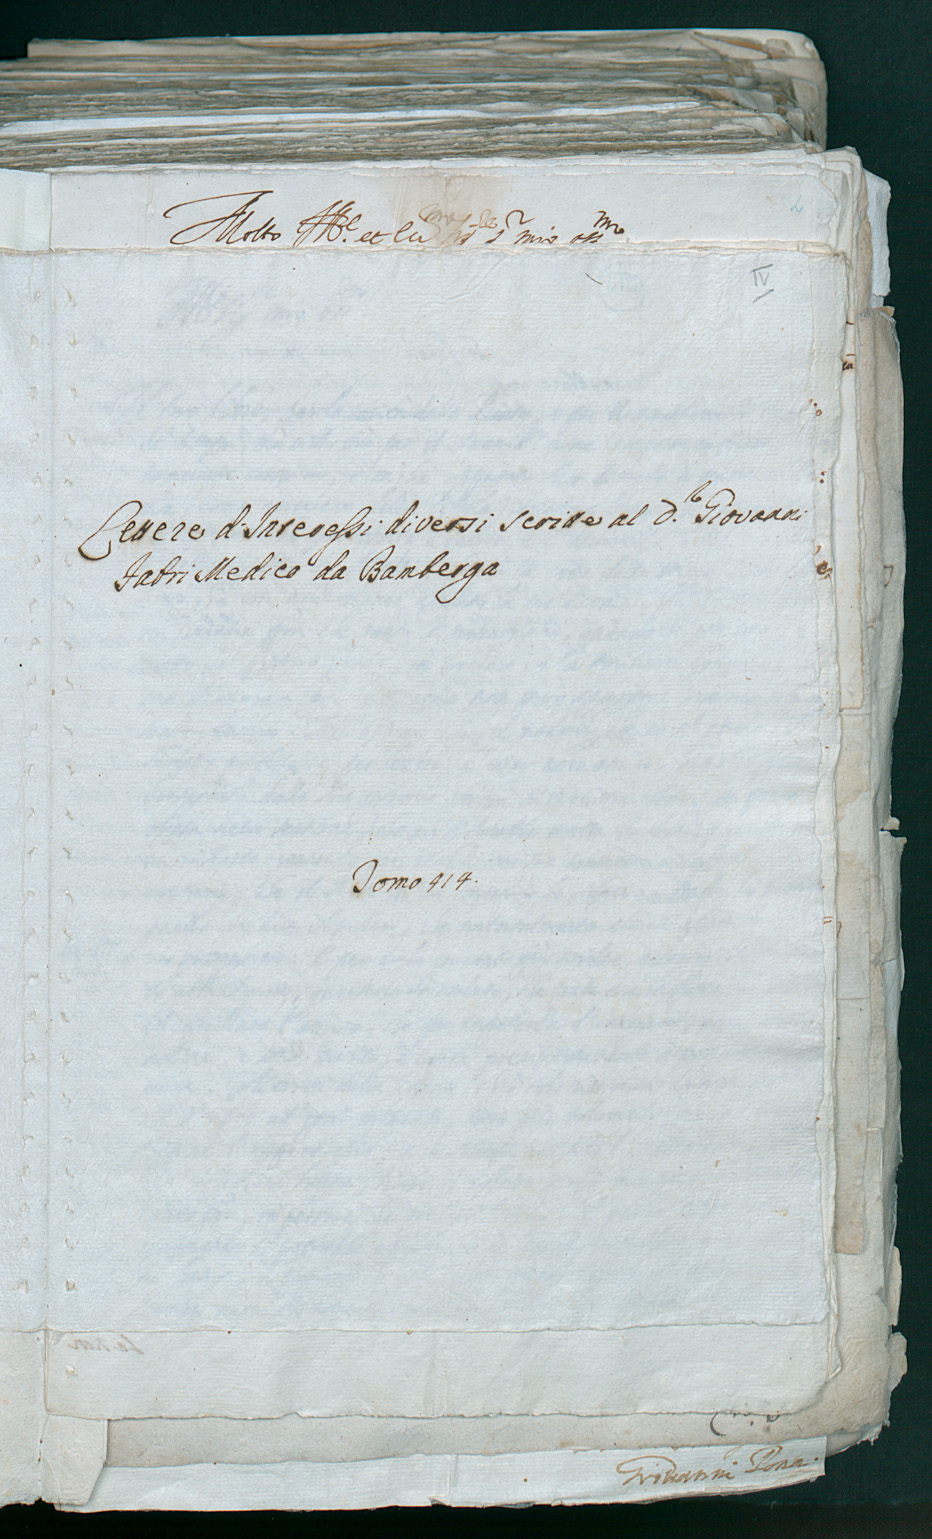 Molto Ill.re et
mio oss.mo
4
IV
Lettere d'Interessi diversi scritte al D.re Giovanni
Fabri Medico da Bamberga
Tomo 414.
Giovanni Pona.